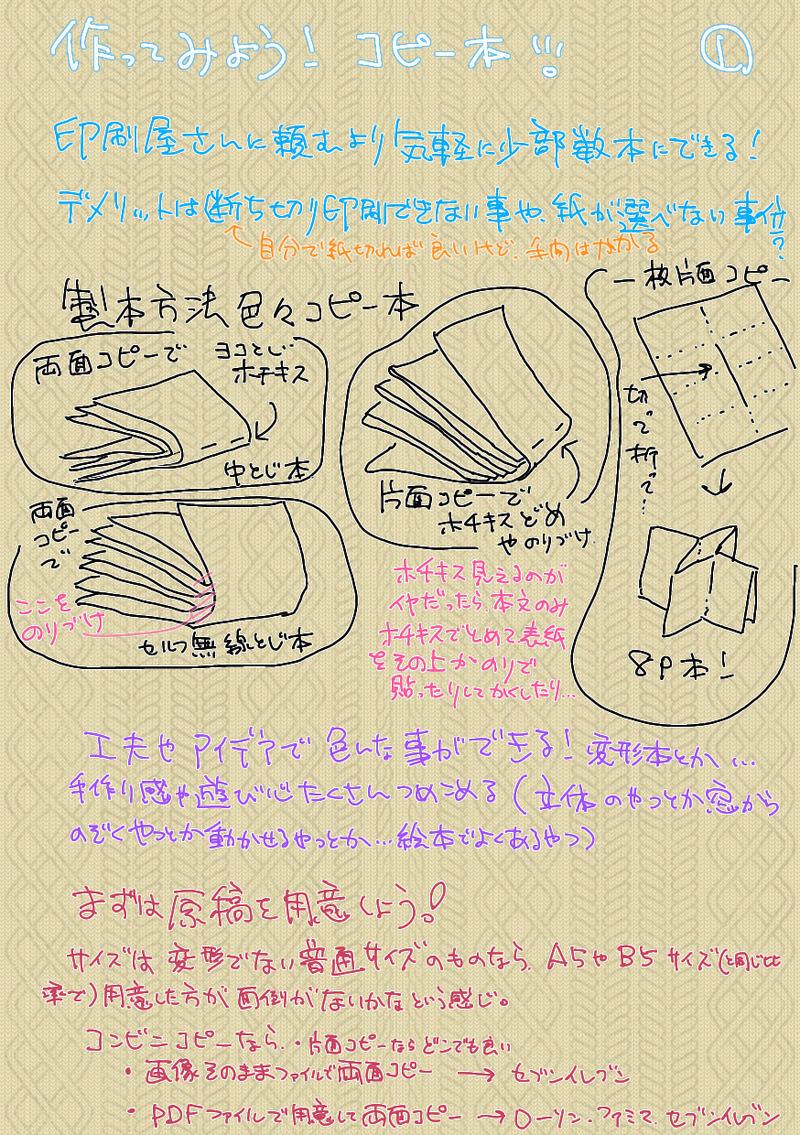 作ってみよう！ コピー本!!! ①
印刷屋さんに頼むより気軽に少部数本にできる！
デメリットは断ち切り印刷できない事や、紙が選べない事位？
自分で紙切れば良いけど、手間はかかる
製本方法色々コピー本
両面コピーで
ヨコとじ
ホチキス
中とじ本
両面
コピー
で
ここを
のりづけ
セルフ無線とじ本
片面コピーで
ホチキスどめ
やのりづけ
ホチキス見えるのが
イヤだったら、本文のみ
ホチキスでとめて表紙
をその上からのりで
貼ったりしてかくしたり…
一枚片面コピー
切って折って…
8P本！
工夫やアイデアで色んな事ができる！変形本とか…
手作り感や遊び心たくさんつめこめる（立体のやつとか窓から
のぞくやつとか動かせるやつとか…絵本でよくあるやつ）
まずは原稿を用意しよう！
サイズは変形でない普通サイズのものなら、A5やB5サイズ(と同じ比
率で)用意した方が面倒がないかなという感じ。
コンビニコピーなら、・片面コピーならどこでも良い
・画像そのままファイルで両面コピー → セブンイレブン
・PDFファイルで用意して両面コピー → ローソン、ファミマ、セブンイレブン